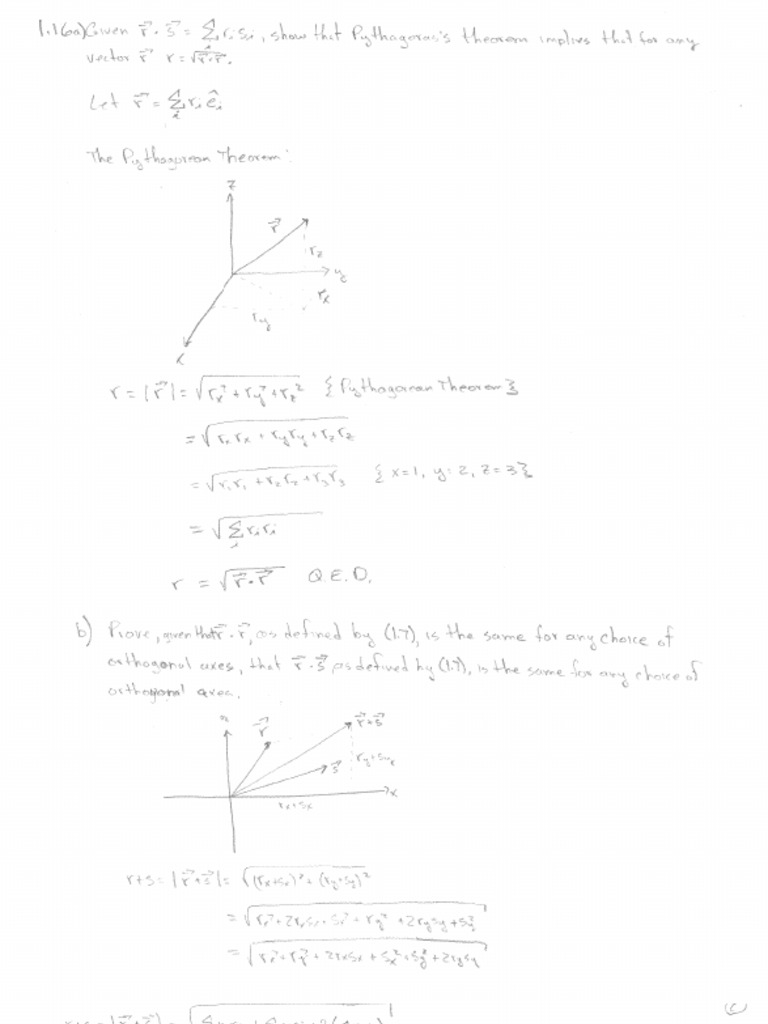 1.16a) Given r⃗ · s⃗ = Σᵢ rᵢsᵢ, show that Pythagoras's theorem implies that for any
vector r⃗ r = √(r⃗·r⃗).
Let r⃗ = Σᵢ rᵢêᵢ
The Pythagorean Theorem:
z
r⃗
r_z
y
r_x
r_y
x
r = |r⃗| = √(r_x² + r_y² + r_z²) {Pythagorean Theorem}
= √(r_x r_x + r_y r_y + r_z r_z)
= √(r₁r₁ + r₂r₂ + r₃r₃) {x=1, y=2, z=3}
= √(Σᵢ rᵢrᵢ)
r = √(r⃗·r⃗) Q.E.D.
b) Prove, given that r⃗·r⃗, as defined by (1.7), is the same for any choice of
orthogonal axes, that r⃗·s⃗, as defined by (1.7), is the same for any choice of
orthogonal
r⃗
r⃗+s⃗
s⃗
r_y+s_y
x
r_x+s_x
r+s = |r⃗+s⃗| = √((r_x+s_x)² + (r_y+s_y)²)
= √(r_x² + 2r_xs_x + s_x² + r_y² + 2r_ys_y + s_y²)
= √(r_x² + r_y² + 2r_xs_x + s_x² + s_y² + 2r_ys_y)
r+s = |r⃗+s⃗| =